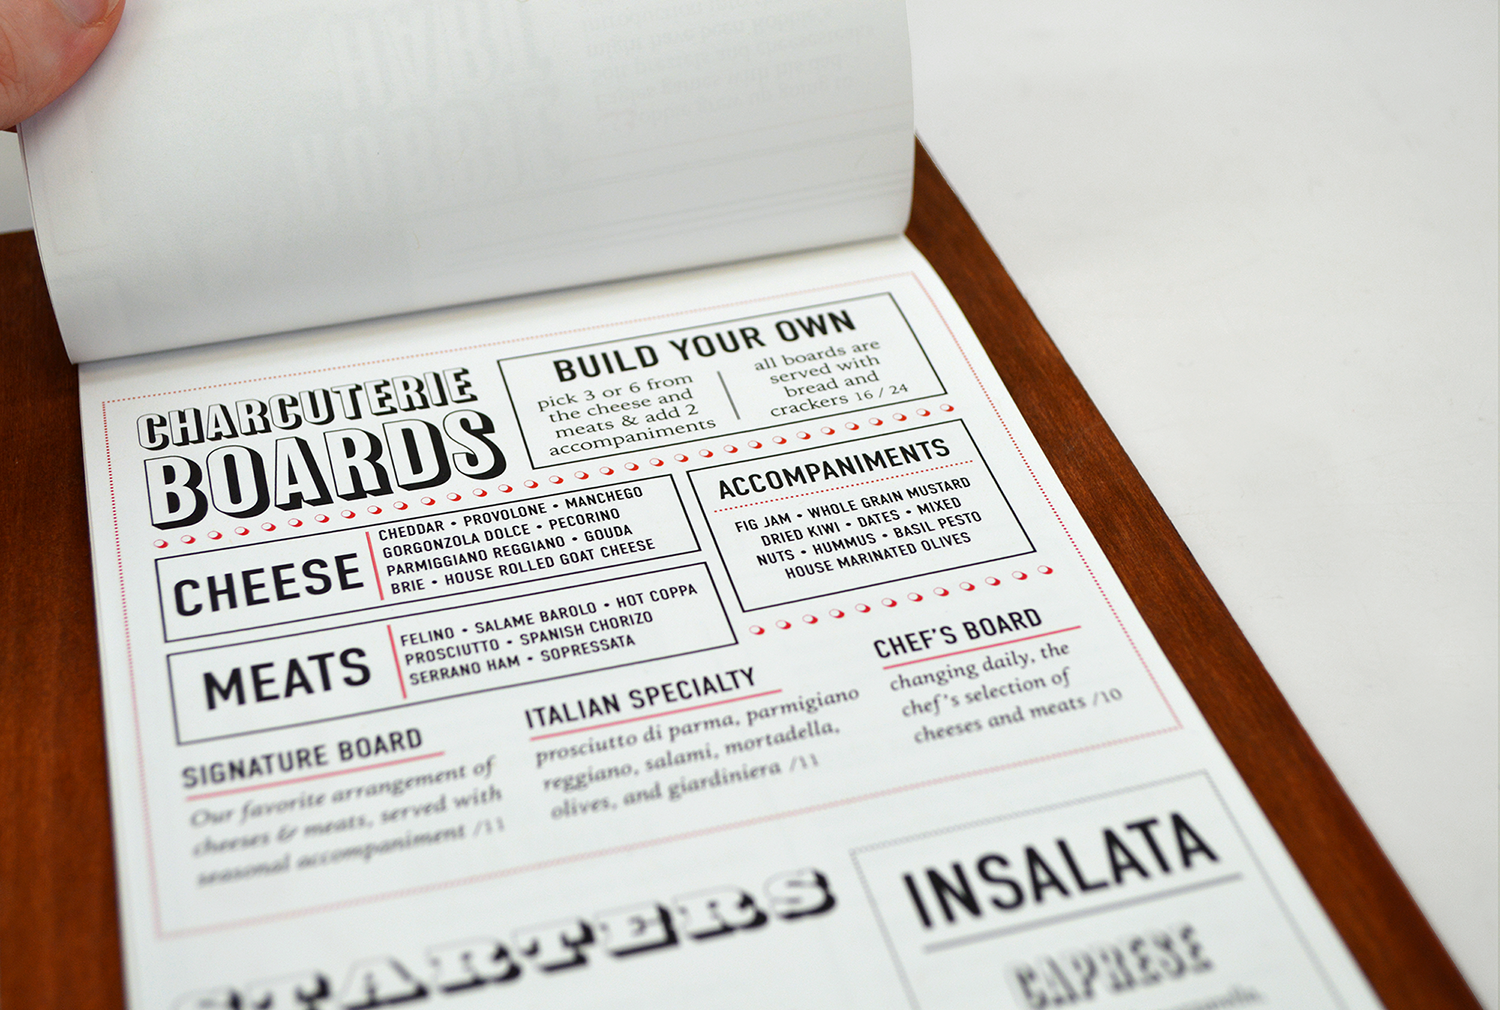 CHARCUTERIE
BOARDS
BUILD YOUR OWN
pick 3 or 6 from
the cheese and
meats & add 2
accompaniments
all boards are
served with
bread and
crackers 16 / 24
CHEESE
CHEDDAR • PROVOLONE • MANCHEGO
GORGONZOLA DOLCE • PECORINO
PARMIGGIANO REGGIANO • GOUDA
BRIE • HOUSE ROLLED GOAT CHEESE
MEATS
FELINO • SALAME BAROLO • HOT COPPA
PROSCIUTTO • SPANISH CHORIZO
SERRANO HAM • SOPRESSATA
ACCOMPANIMENTS
FIG JAM • WHOLE GRAIN MUSTARD
DRIED KIWI • DATES • MIXED
NUTS • HUMMUS • BASIL PESTO
HOUSE MARINATED OLIVES
SIGNATURE BOARD
Our favorite arrangement of
cheeses & meats, served with
seasonal accompaniment /11
ITALIAN SPECIALTY
prosciutto di parma, parmigiano
reggiano, salami, mortadella,
olives, and giardiniera /11
CHEF'S BOARD
changing daily, the
chef's selection of
cheeses and meats /10
STARTERS
INSALATA
CAPRESE